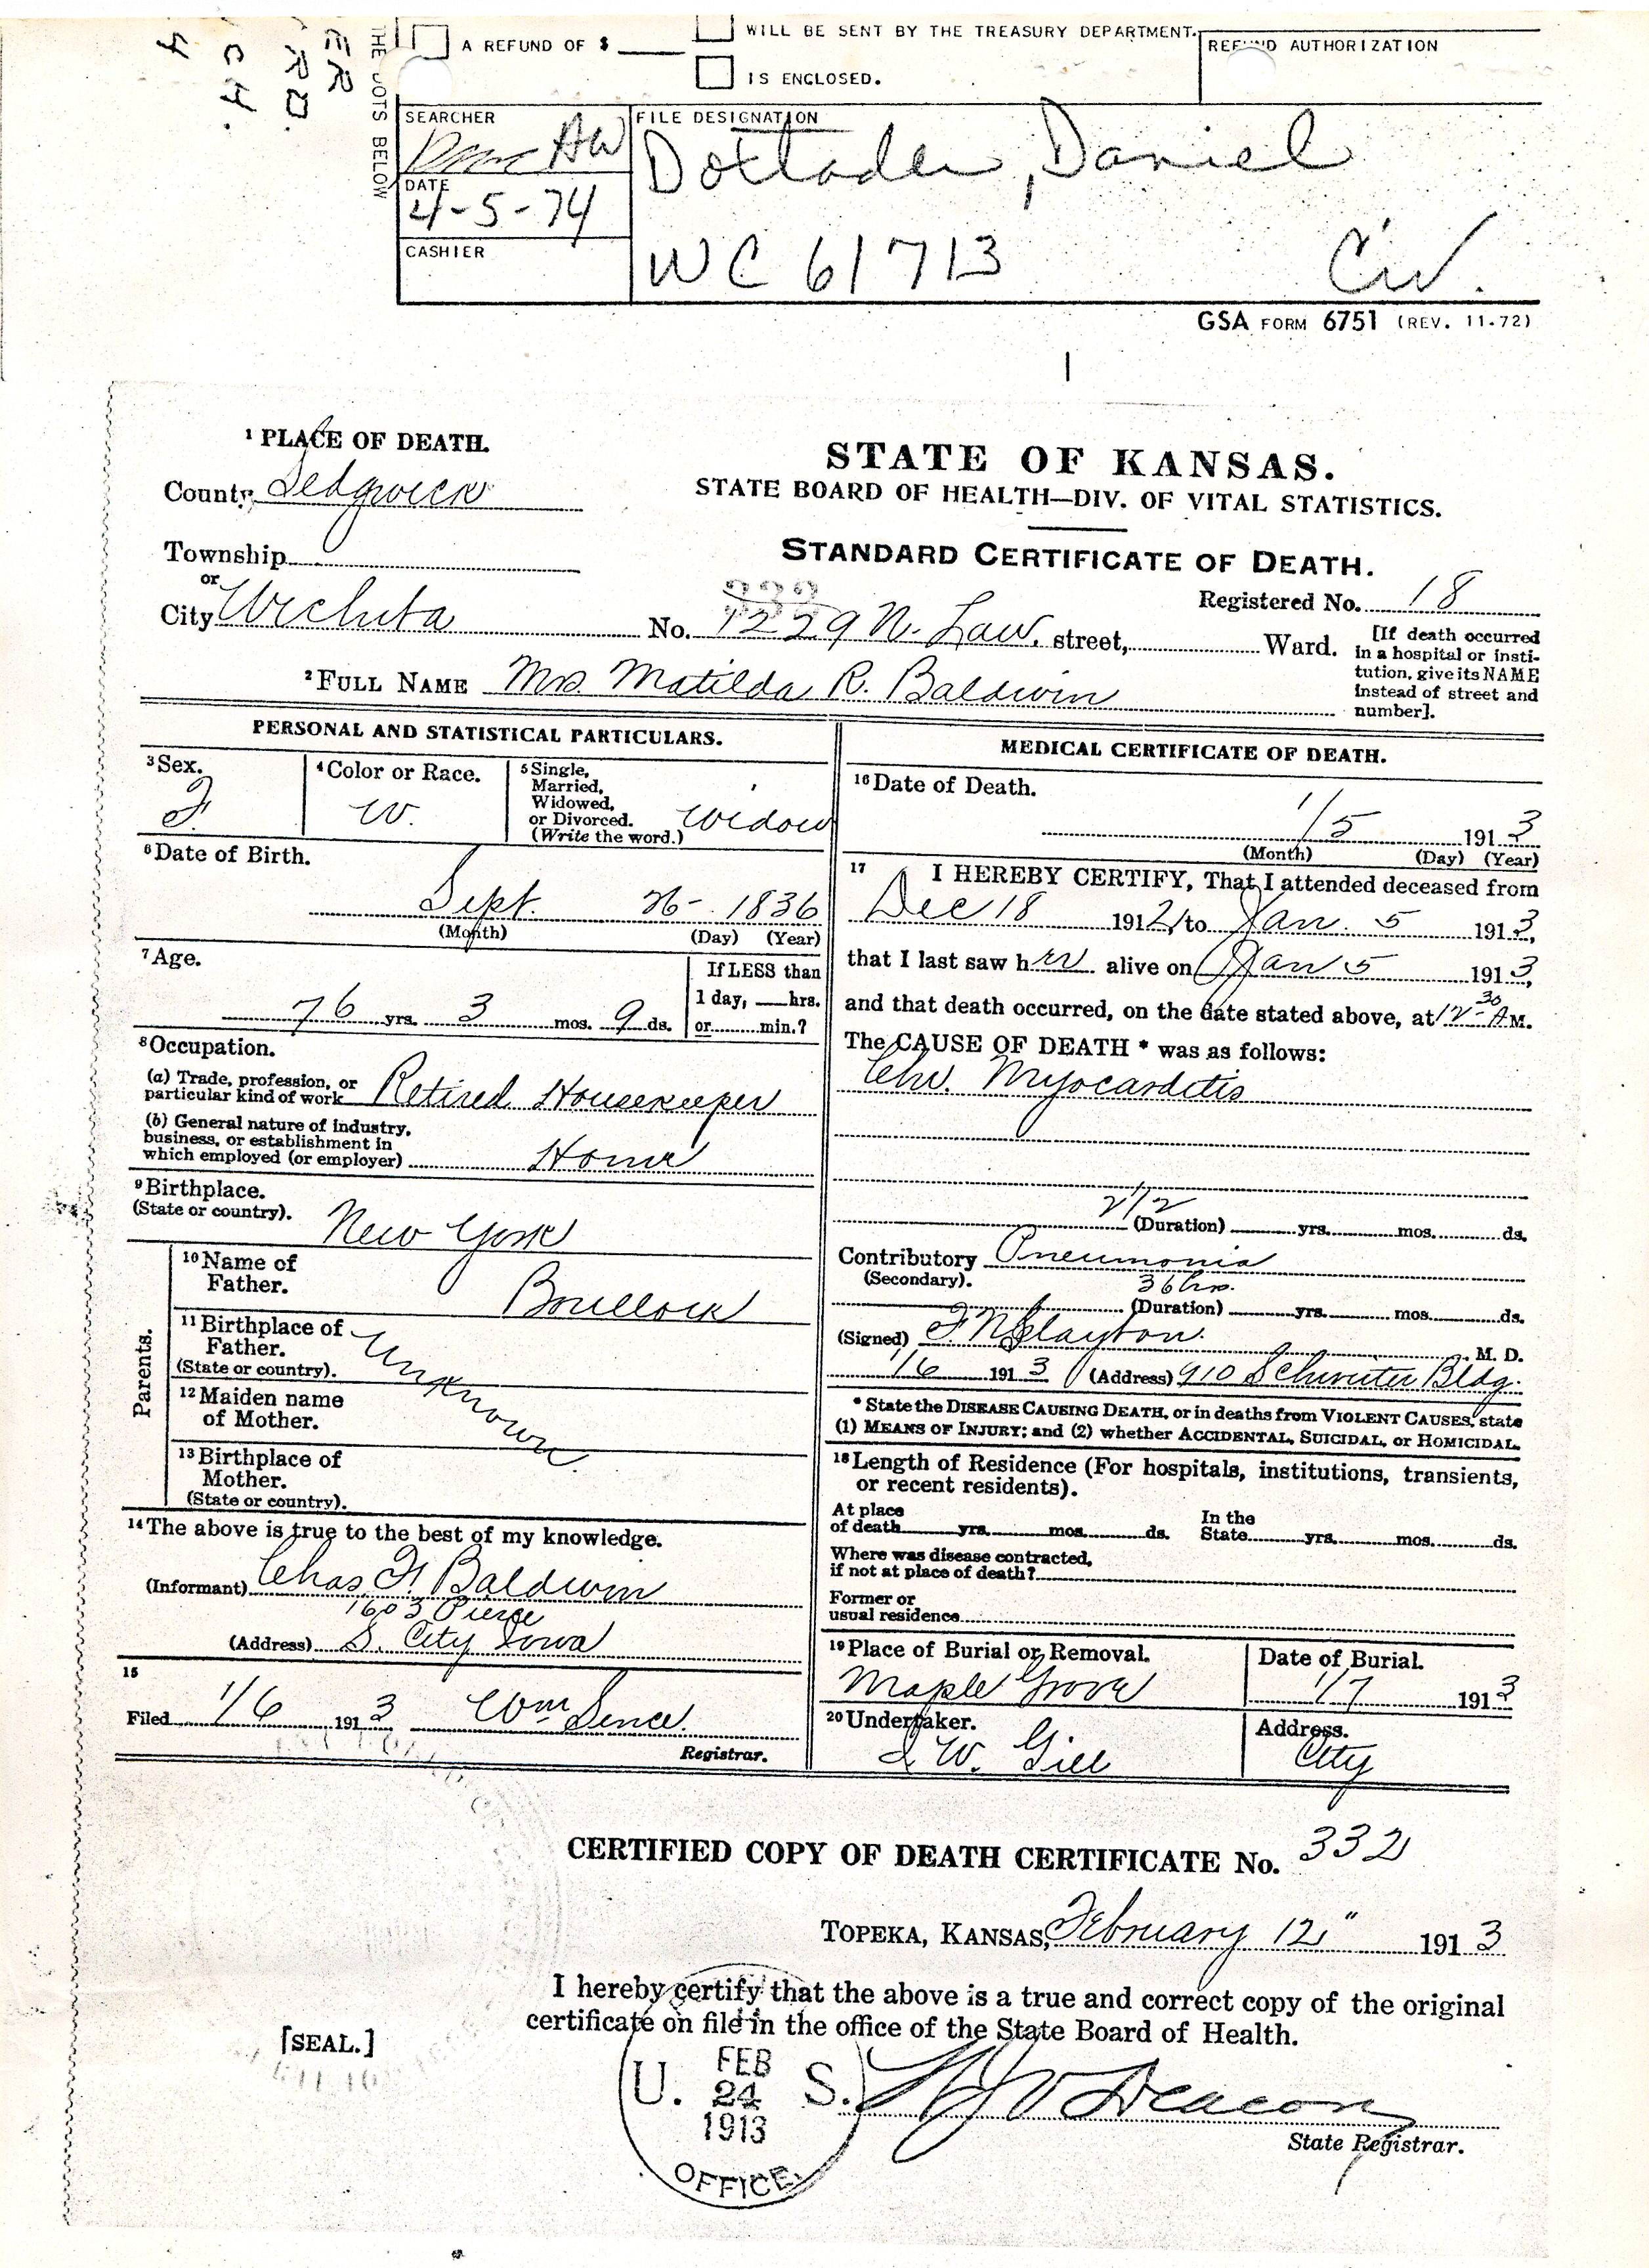 WILL BE SENT BY THE TREASURY DEPARTMENT.
A REFUND OF $
IS ENCLOSED.
REFUND AUTHORIZATION
THE DOTS BELOW
SEARCHER
AW
DATE
4-5-74
CASHIER
FILE DESIGNATION
Daniel
WC 61713
CW.
GSA FORM 6751 (REV. 11-72)
1 PLACE OF DEATH.
County Sedgwick
Township
or
City Wichita
STATE OF KANSAS.
STATE BOARD OF HEALTH—DIV. OF VITAL STATISTICS.
STANDARD CERTIFICATE OF DEATH.
332
Registered No. 18
No. 1229 N. Law. street, Ward.
[If death occurred in a hospital or insti-
tution, give its NAME
instead of street and
number].
2 FULL NAME Mrs. Matilda R. Baldwin
PERSONAL AND STATISTICAL PARTICULARS.
3 Sex.
F.
4 Color or Race.
W.
5 Single,
Married,
Widowed,
or Divorced.
(Write the word.)
Widow
6 Date of Birth.
Sept. 26- 1836
(Month) (Day) (Year)
7 Age.
76 yrs. 3 mos. 9 ds.
If LESS than
1 day, hrs.
or min.?
8 Occupation.
(a) Trade, profession, or
particular kind of work Retired Housekeeper
(b) General nature of industry,
business, or establishment in
which employed (or employer) Home
9 Birthplace.
(State or country).
New York
Parents.
10 Name of
Father.
11 Birthplace of
Father.
(State or country).
Unknown.
12 Maiden name
of Mother.
13 Birthplace of
Mother.
(State or country).
14 The above is true to the best of my knowledge.
(Informant) Chas. F. Baldwin
1603 Pierce
(Address) S. City Iowa
15
Filed 1/6 1913 Wm Sence.
Registrar.
MEDICAL CERTIFICATE OF DEATH.
16 Date of Death.
1/5 1913
(Month) (Day) (Year)
17 I HEREBY CERTIFY, That I attended deceased from
Dec 18 1912, to Jan. 5 1913,
that I last saw her alive on Jan 5 1913,
and that death occurred, on the date stated above, at 12-30 A M.
The CAUSE OF DEATH * was as follows:
Chr. Myocarditis
2 1/2
(Duration) yrs. mos. ds.
Contributory Pneumonia
(Secondary).
36 hrs.
(Duration) yrs. mos. ds.
(Signed) F. N. Slayton. M. D.
1/6 1913 (Address) 910 Schweiter Bldg.
* State the DISEASE CAUSING DEATH, or in deaths from VIOLENT CAUSES, state
(1) MEANS OF INJURY; and (2) whether ACCIDENTAL, SUICIDAL, or HOMICIDAL.
18 Length of Residence (For hospitals, institutions, transients,
or recent residents).
At place
of death yrs. mos. ds.
In the
State yrs. mos. ds.
Where was disease contracted,
if not at place of death?
Former or
usual residence
19 Place of Burial or Removal.
Maple Grove
Date of Burial.
1/7 1913
20 Undertaker.
W. Gill
Address.
City
CERTIFIED COPY OF DEATH CERTIFICATE No. 332
TOPEKA, KANSAS, February 12" 1913
I hereby certify that the above is a true and correct copy of the original
certificate on file in the office of the State Board of Health.
[SEAL.]
U. S.
FEB
24
1913
OFFICE
Deacon
State Registrar.